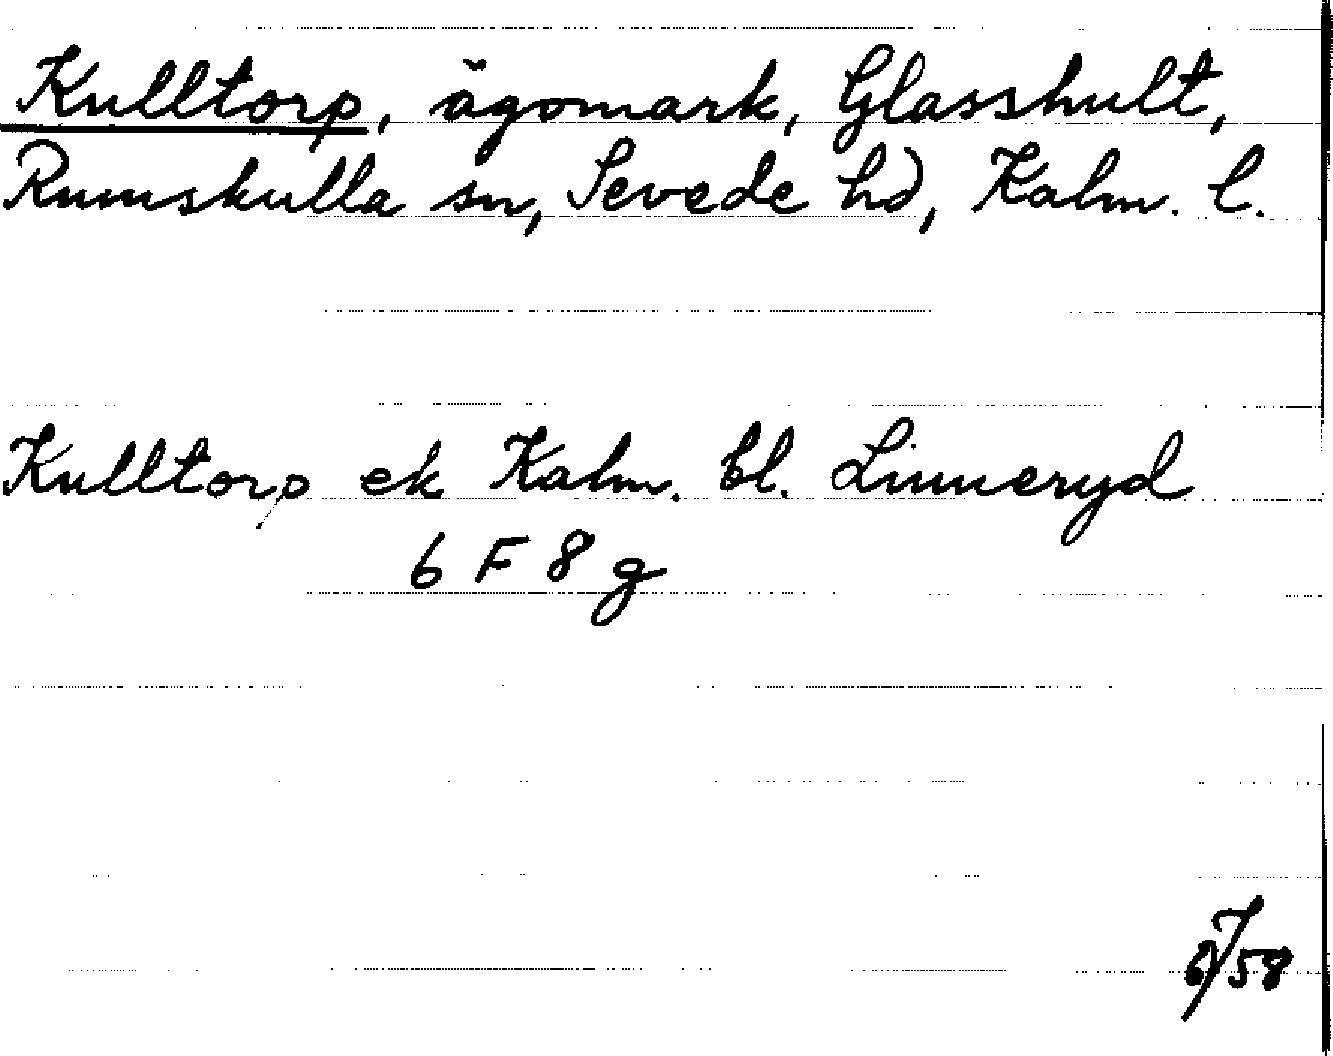 Kulltorp, ägomark, Glasshult,
Rumskulla sn, Sevede hd, Kalm. l.
Kulltorp ek Kalm. bl. Linneryd
6 F 8 g